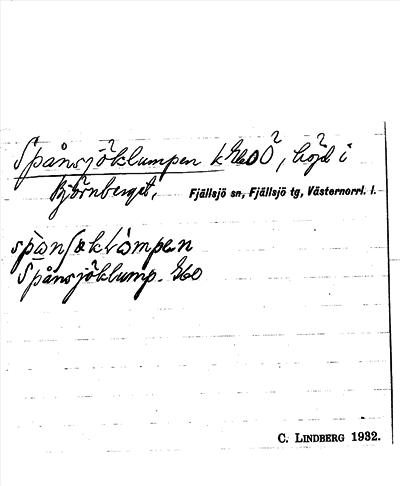 Spånsjöklumpen k E600, höjd i
Björnberget. Fjällsjö sn, Fjällsjö tg, Västernorrl. l.
Spånsjöklump. E60
C. LINDBERG 1932.